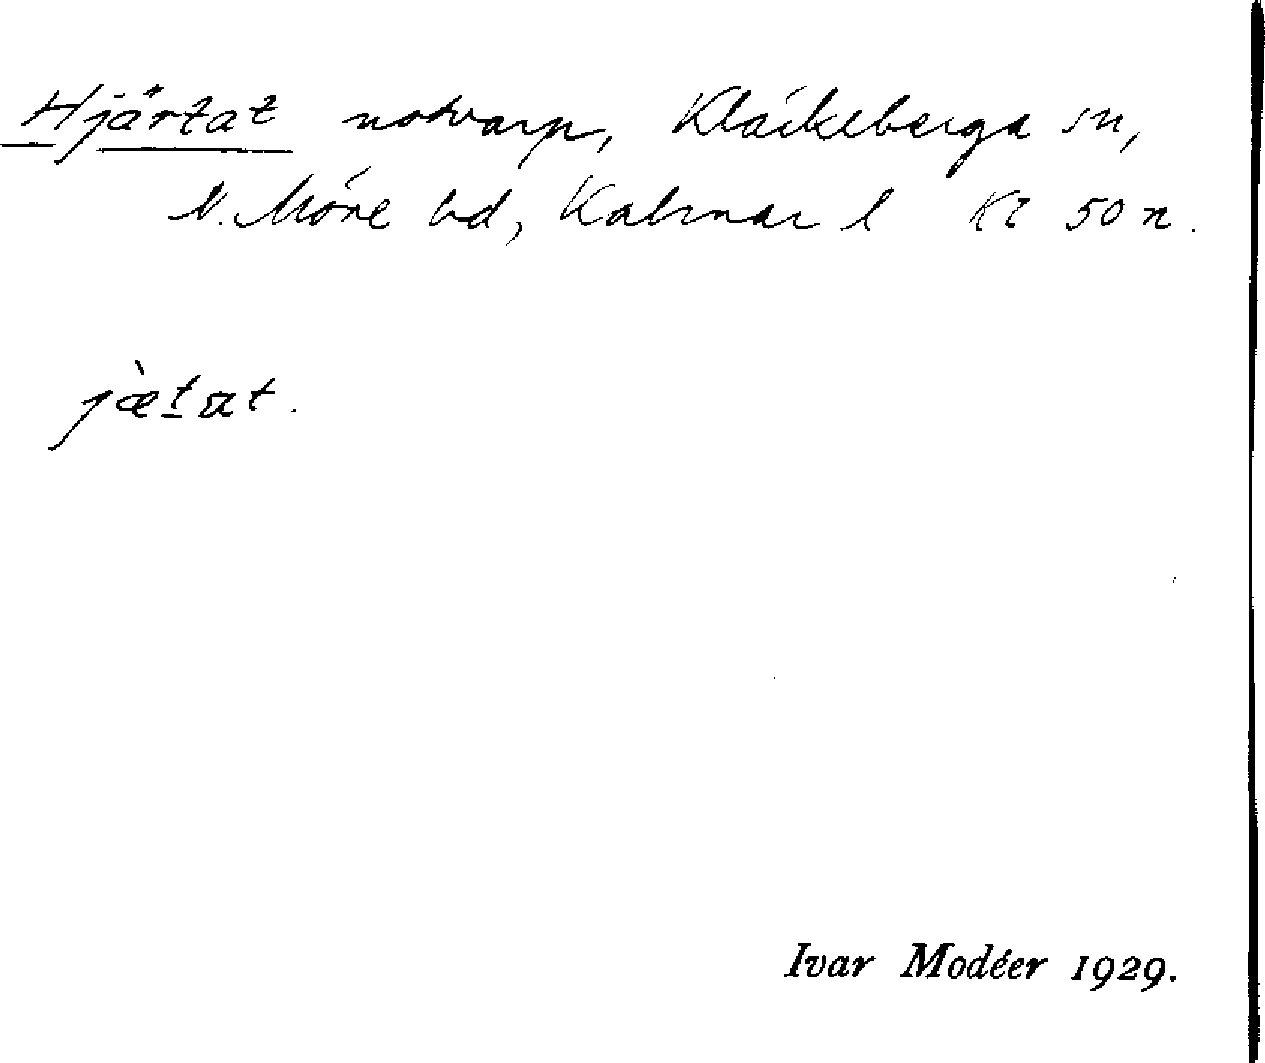 Hjärtat notvarp, Kläckeberga sn,
N. Möre hd, Kalmar l Kt 50 n.
jæ̀tat.
Ivar Modéer 1929.